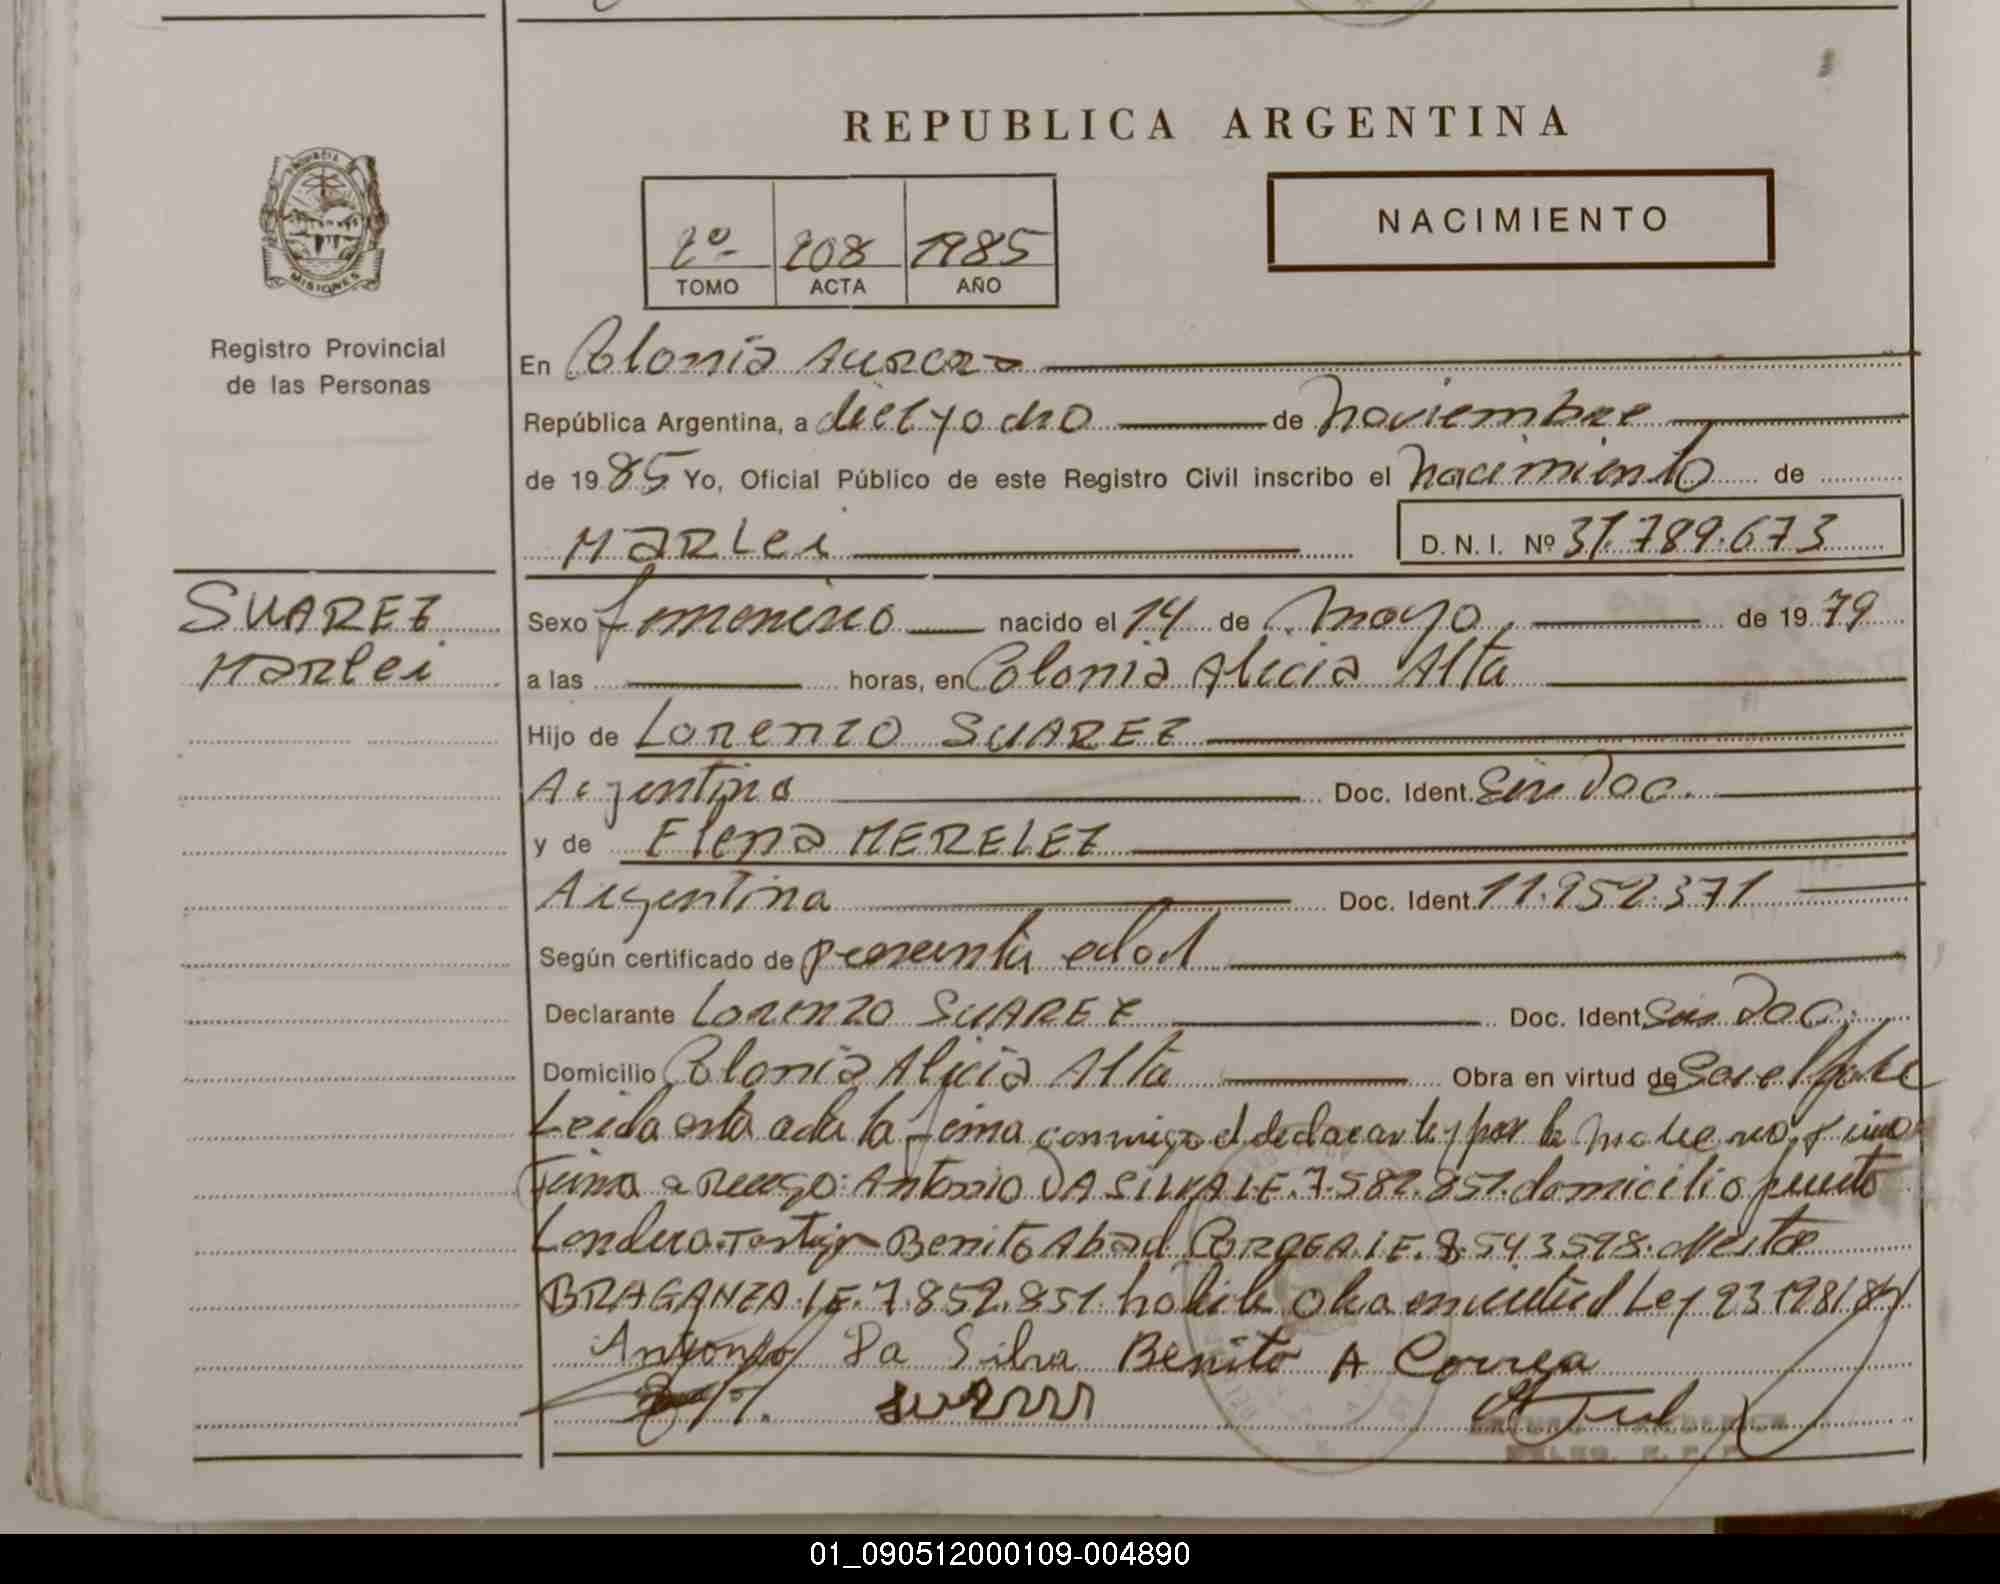 REPUBLICA ARGENTINA
NACIMIENTO
2º 208 1985
TOMO ACTA AÑO
MISIONES
Registro Provincial
de las Personas
En Colonia Aurora
República Argentina, a dieciyocho de Noviembre
de 1985 Yo, Oficial Público de este Registro Civil inscribo el Nacimiento de
MARLei D.N.I. Nº 31.789.673
SUAREZ
MARlei
Sexo femenino nacido el 14 de Mayo de 1979
a las horas, en Colonia Alicia Alta
Hijo de Lorenzo SUAREZ
Argentino Doc. Ident. Sin Doc.
y de Elena MERELEZ
Argentina Doc. Ident. 11.952.371
Según certificado de presunta edad
Declarante Lorenzo SUAREZ Doc. Ident. Sin Doc.
Domicilio Colonia Alicia Alta Obra en virtud de
Leida esta acta la firma conmigo el declarante y por la
firma a Ruego: Antonio DA SILVA LE. 7.582.851. domicilio puerto
Londero. Testigo Benito Abad CORREA. LE. 8.543.598. Nestor
BRAGANZA. LE. 7.852.851. obra en virtud Ley 23198/84
Antonio Da Silva Benito A Correa
01_090512000109-004890